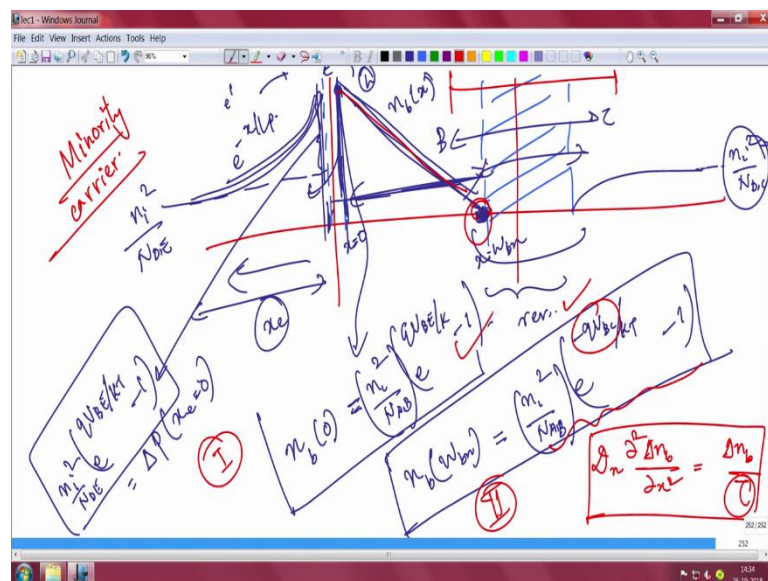 lec1 - Windows Journal
File Edit View Insert Actions Tools Help
96%
B I
Minority
carrier
e^{-x/Lp}
n_b(x)
B
C
n_i^2
N_{DE}
n_i^2
N_{DC}
x=0
x=W_{bn}
x_e
rev.
n_i^2/N_{DE} (e^{qV_{BE}/kT} -1)
= Δp(x_e=0)
I
n_b(0) = (n_i^2/N_{AB}) (e^{qV_{BE}/kT} -1)
n_b(W_{bn}) = (n_i^2/N_{AB}) (e^{-qV_{BC}/kT} -1)
II
D_n ∂^2 Δn_b/∂x^2 = Δn_b/τ
252 / 252
252
14:34